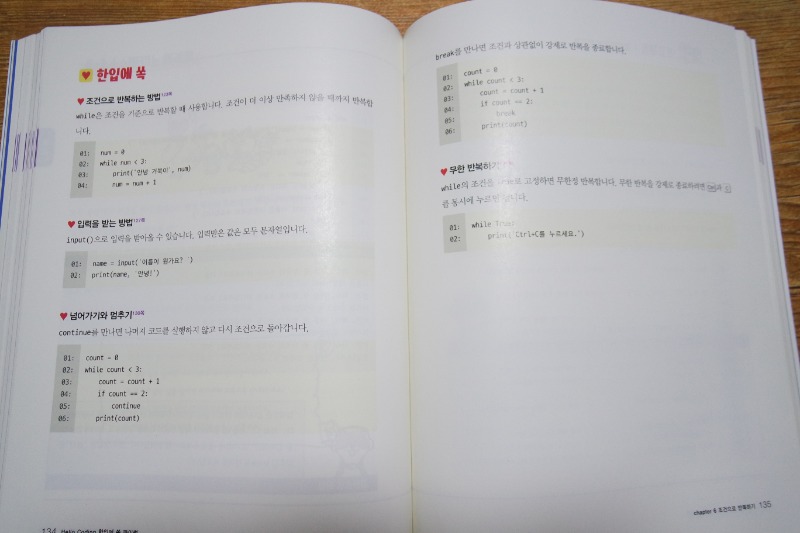 한입에 쏙
♥ 조건으로 반복하는 방법
while은 조건을 기준으로 반복할 때 사용합니다. 조건이 더 이상 만족하지 않을 때까지 반복합
니다.
01: num = 0
02: while num < 3:
03: print('안녕 거북이', num)
04: num = num + 1
♥ 입력을 받는 방법
input()으로 입력을 받아올 수 있습니다. 입력받은 값은 모두 문자열입니다.
01: name = input('이름이 뭔가요? ')
02: print(name, '안녕?')
♥ 넘어가기와 멈추기
continue를 만나면 나머지 코드를 실행하지 않고 다시 조건으로 돌아갑니다.
01: count = 0
02: while count < 3:
03: count = count + 1
04: if count == 2:
05: continue
06: print(count)
134 Hello Coding 한입에 쏙 파이썬
break를 만나면 조건과 상관없이 강제로 반복을 종료합니다.
01: count = 0
02: while count < 3:
03: count = count + 1
04: if count == 2:
05: break
06: print(count)
♥ 무한 반복하기
while의 조건을 True로 고정하면 무한정 반복합니다. 무한 반복을 강제로 종료하려면 Ctrl과 C
를 동시에 누르면 됩니다.
01: while True:
02: print('Ctrl+C를 누르세요.')
chapter 6 조건으로 반복하기 135